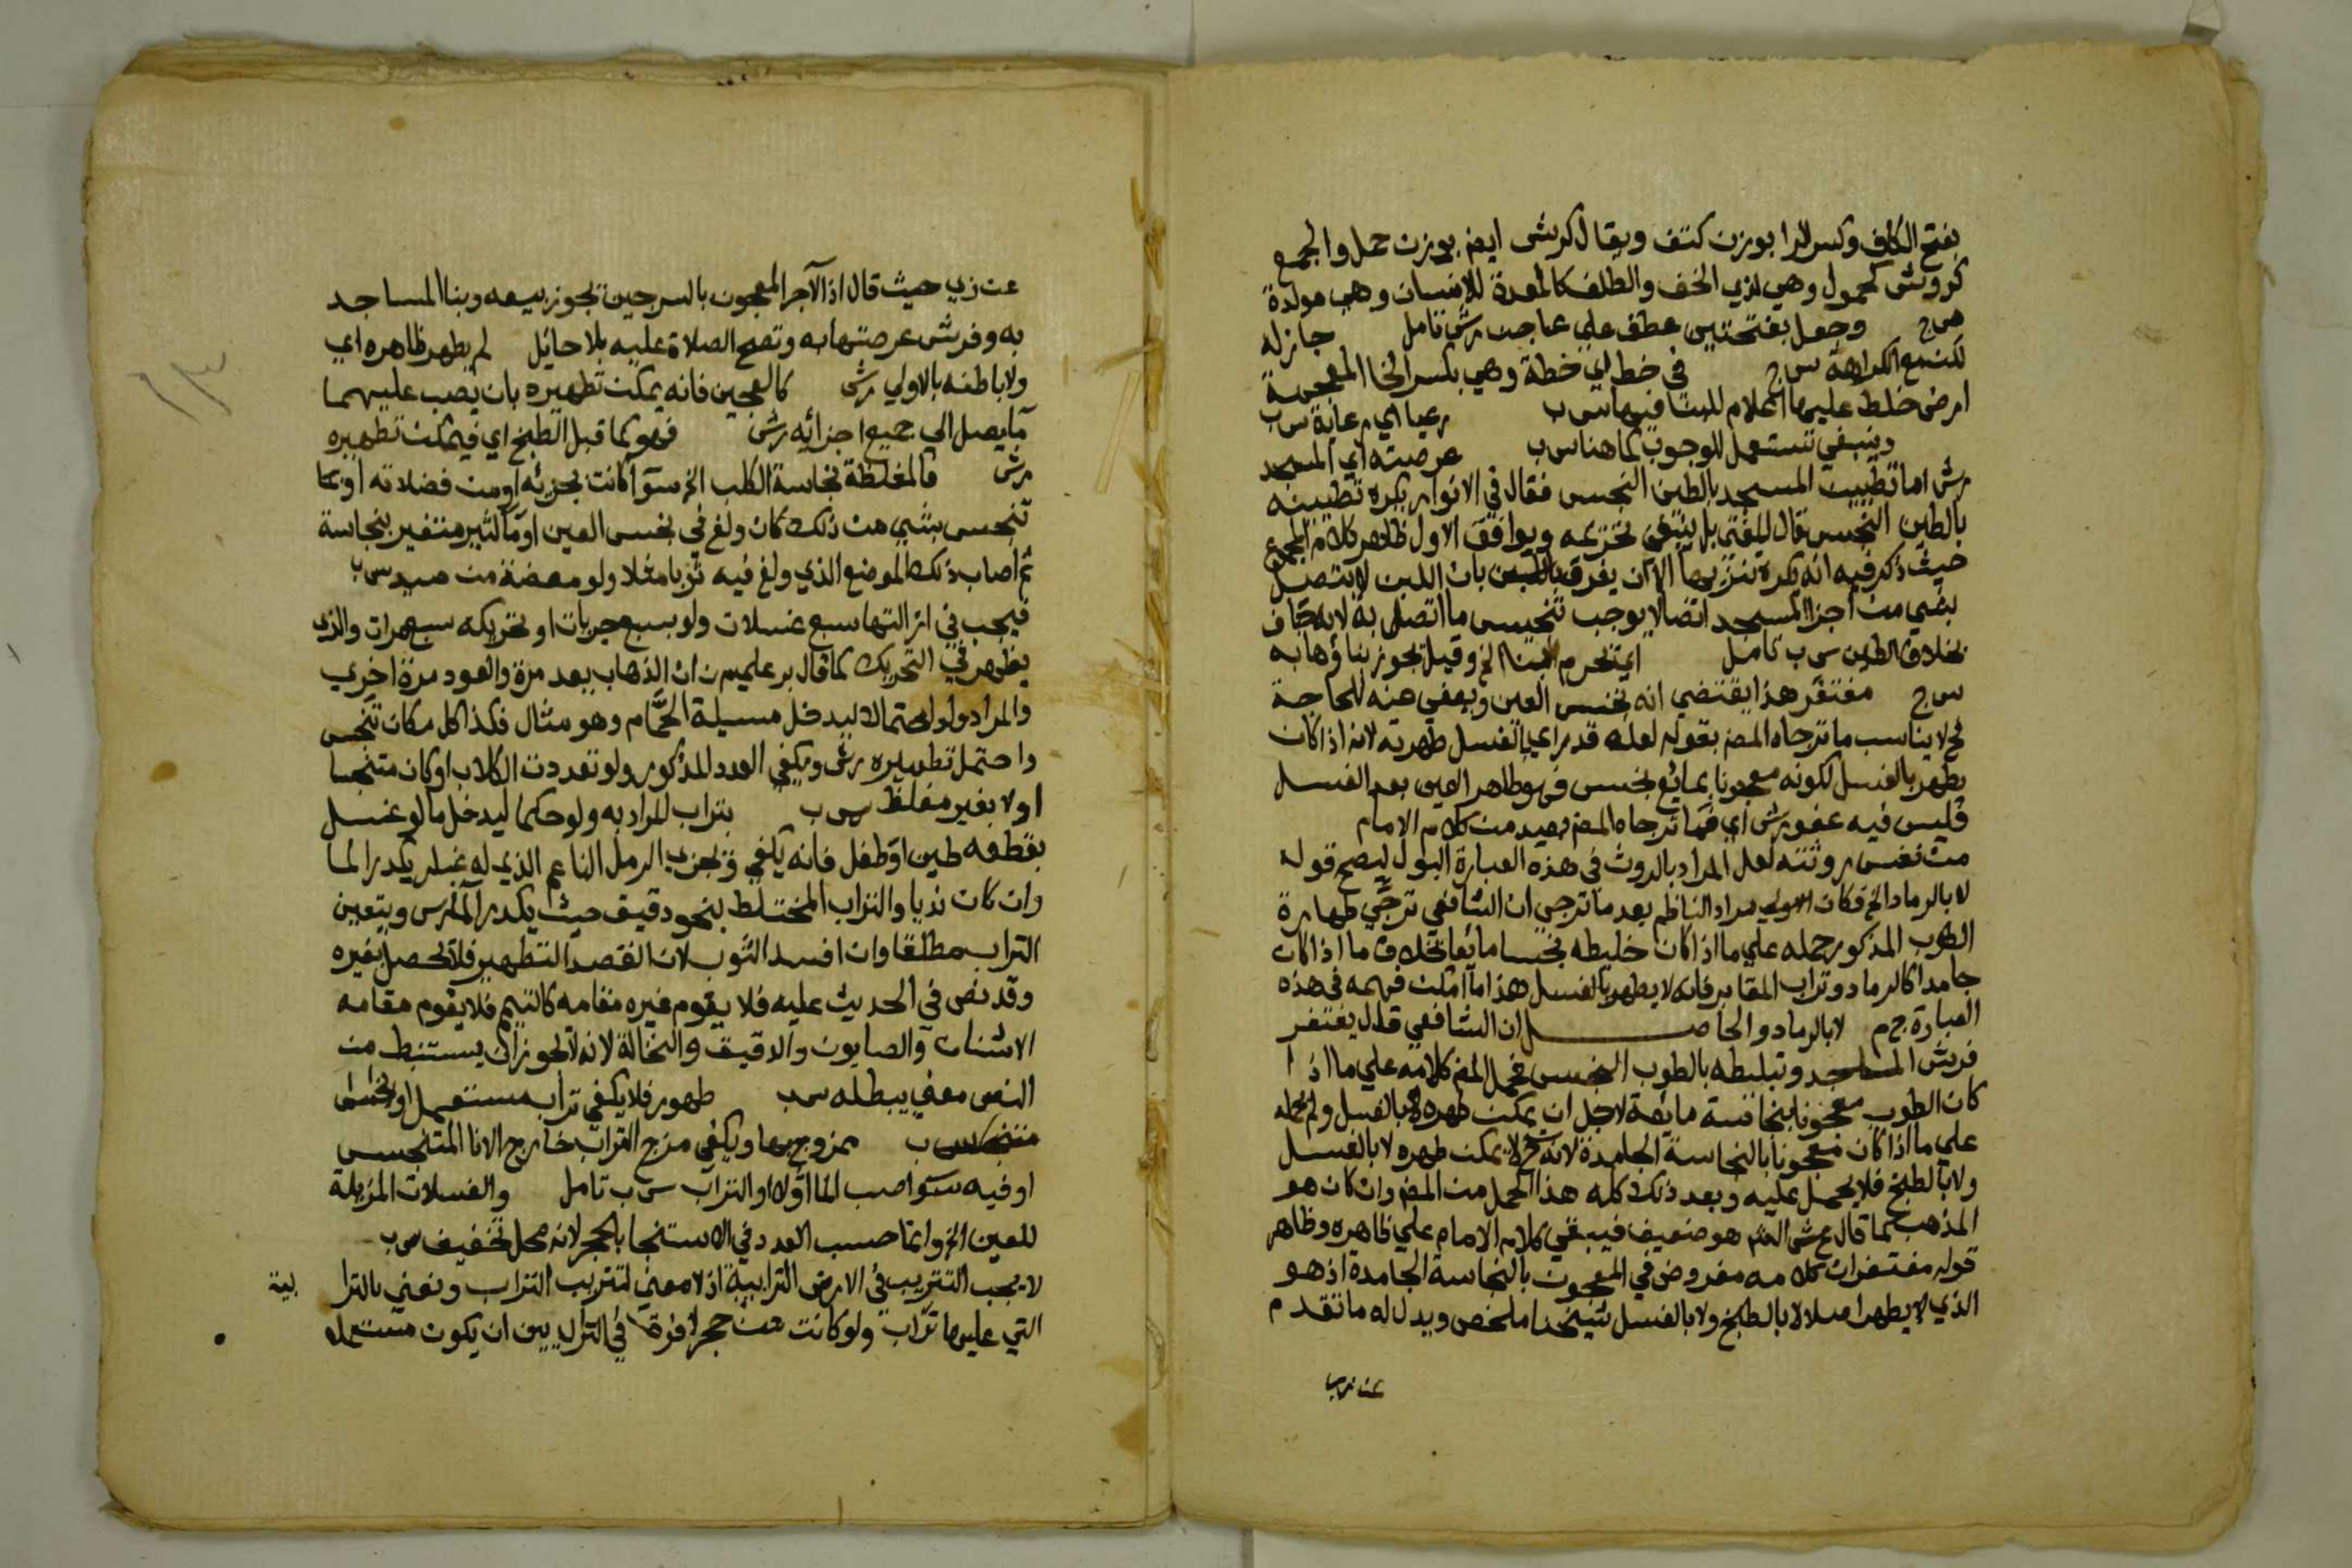 بفتح الكاف وكسر الرا بوزن كتف ويقال كرش ايض بوزن حمل والجمع
كروش كحمول وهي لذي الخف والظلف كالمعدة للانسان وهي مولدة
وجعل بفتحتين عطف علي عاجن رش تامل جاز له
لكن مع الكراهة س ج في خط اي خطة وهي بكسر الخا المعجمة
ارض خلط عليها اعلام للبنا فيها س ب رعيا اي رعاية س ب
وينبغي تستعمل للوجوب كما هنا س ب عرصته اي المسجد
رش اما تطيين المسجد بالطين النجس فقال في الانوار يكره تطيينه
بالطين النجس قال المفتي بل ينبغي تحريمه ويوافق الاول ظاهر كلام المجموع
حيث ذكر فيه انه يكره تنزيها الا ان يفرق بان اللبن لا يتصل
بشي من اجزا المسجد اتصالا يوجب تنجيس ما اتصل به لانه جاف
بخلاف الطين س ب تامل اي تحرم الخ وقيل يجوز بناؤها به
س ج مغتفر هذا يقتضي انه نجس العين ويعفي عنه للحاجة
فح لا يناسب ما ترجاه المص بقوله لعله قد راي بالغسل طهرته لانه اذا كان
يطهر بالغسل لكونه معجونا بمائع نجس فهو طاهر العين بعد الغسل
فليس فيه عفو رش اي فما ترجاه المص بعيد من كلام الامام
من نفس روثته لعل المراد بالروث في هذه العبارة البول ليصح قوله
لا بالرماد الخ فكان الاولي مراد الناظم بعد ما ترجي ان الشافعي ترجي طهارة
الطوب المذكور حمله علي ما اذا كان خليطه نجسا مائعا بخلاف ما اذا كان
جامدا كالرماد وتراب المقابر فانه لا يطهر بالغسل هذا ما امكن فهمه في هذه
العبارة ج م لا بالرماد والحاصل ان الشافعي قال يغتفر
فرش المساجد وتبليطه بالطوب النجس فحمل المص كلامه علي ما اذا
كان الطوب معجونا بنجاسة مائعة لاجل ان يمكن طهره بالغسل ولم يحمله
علي ما اذا كان معجونا بالنجاسة الجامدة لانه ح لا يمكن طهره لا بالغسل
ولا بالطبخ فلا يحمل عليه وبعد ذلك كله هذا الحمل من المص وان كان هو
المذهب كما قال ع ش العم هو ضعيف فيبقي كلام الامام علي ظاهره وظاهر
قوله مغتفر ان كلامه مفروض في المعجون بالنجاسة الجامدة اذ هو
الذي لا يطهر اصلا لا بالطبخ ولا بالغسل شيخنا ملخص ويدل له ما تقدم
عن
عن زي حيث قال اذ الآجر المعجون بالسرجين يجوز بيعه وبنا المساجد
به وفرش عرصتها به وتصح الصلاة عليه بلا حائل لم يطهر ظاهره اي
ولا باطنه بالاولي رش كالعجين فانه يمكن تطهيره بان يصب عليهما
ما يصل الي جميع اجزائه رش فهو كما قبل الطبخ اي فيمكن تطهيره
رش فالمغلظة نجاسة الكلب الخ سوآ كانت بجزئه او من فضلاته او بما
تنجس بشي من ذلك كان ولغ في نجس العين او مآ كثير متغير بنجاسة
ثم اصاب ذلك الموضع الذي ولغ فيه ثوبا مثلا ولو معضة من صيد س ب
فيجب في ازالتها سبع غسلات ولو بسبع جريات او تحريكه سبع مرات والذي
يظهر في التحريك كما قال بر علي م ر ان الذهاب يعد مرة والعود مرة اخري
والمراد ولو احتمالا ليدخل مسيلة الحمام وهو مثال فكذا كل مكان تنجس
واحتمل تطهيره رش ويكفي العدد المذكور ولو تعددت الكلاب او كان متنجسا
اولا بغير مغلظ س ب بتراب المراد به ولو حكما ليدخل ما لو غسل
بقطعه طين او طفل فانه يكفي ويجزي الرمل الناعم الذي له غبار يكدر الما
وان كان نديا والتراب المختلط بنحو دقيق حيث يكدر الما رس ويتعين
التراب مطلقا وان افسد الثوب لان القصد التطهير فلا يحصل بغيره
وقد نص في الحديث عليه فلا يقوم غيره مقامه كالتيمم فلا يقوم مقامه
الاشنان والصابون والدقيق والنخالة لانه لا يجوز ان يستنبط من
النص معني يبطله س ب طهور فلا يكفي تراب مستعمل او
ممزوج بها ويكفي مزج التراب خارج الانا المتنجس
او فيه سوآ صب الما اولا او التراب س ب تامل والغسلات المزيلة
للعين الخ وانما حسب العدد في الاستنجا بالحجر لانه محل تخفيف س ب
لا يجب التتريب في الارض الترابية اذ لا معني لتتريب التراب ونعني بالترا
بية
التي عليها تراب ولو كانت من حجر لا فرق في التراب بين ان يكون مستعملا